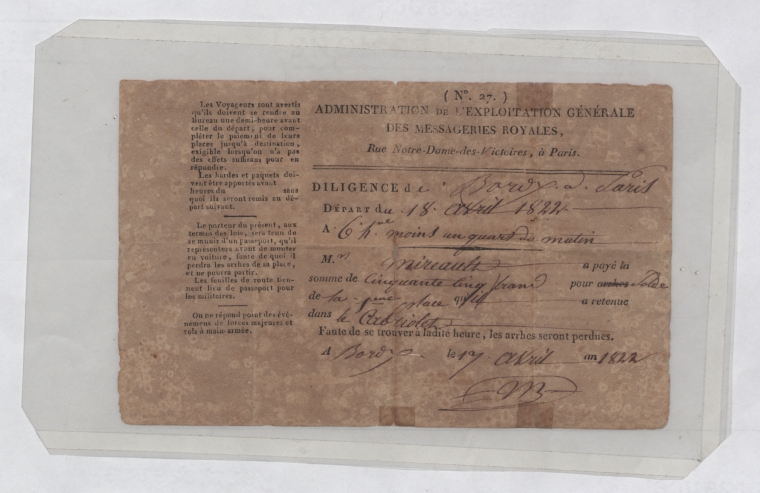 Les Voyageurs sont avertis
qu'ils doivent se rendre au
Bureau une demi-heure avant
celle du départ, pour com-
pléter le paiement de leurs
places jusqu'à destination,
exigible lorsqu'on n'a pas
des effets suffisans pour en
répondre.
Les hardes et paquets doi-
vent être apportés avant
heures du sans
quoi ils seront remis au dé-
part suivant.
Le porteur du présent, aux
termes des lois, sera tenu de
se munir d'un passeport, qu'il
représentera avant de monter
en voiture, faute de quoi il
perdra les arrhes de sa place,
et ne pourra partir.
Les feuilles de route tien-
nent lieu de passeport pour
les militaires.
On ne répond point des évé-
nemens de forces majeures et
vols à main-armée.
( No. 27. )
ADMINISTRATION DE L'EXPLOITATION GÉNÉRALE
DES MESSAGERIES ROYALES,
Rue Notre-Dame-des-Victoires, à Paris.
DILIGENCE de Bordx à Paris
DÉPART du 18 avril 1822
A 6 h. moins un quart du matin
M. Mireault a payé la
somme de Cinquante Cinq francs pour arrhes Solde
de la place qu'il a retenue
dans le Cabriolet
Faute de se trouver à ladite heure, les arrhes seront perdues.
A Bordx le 17 avril an 1822